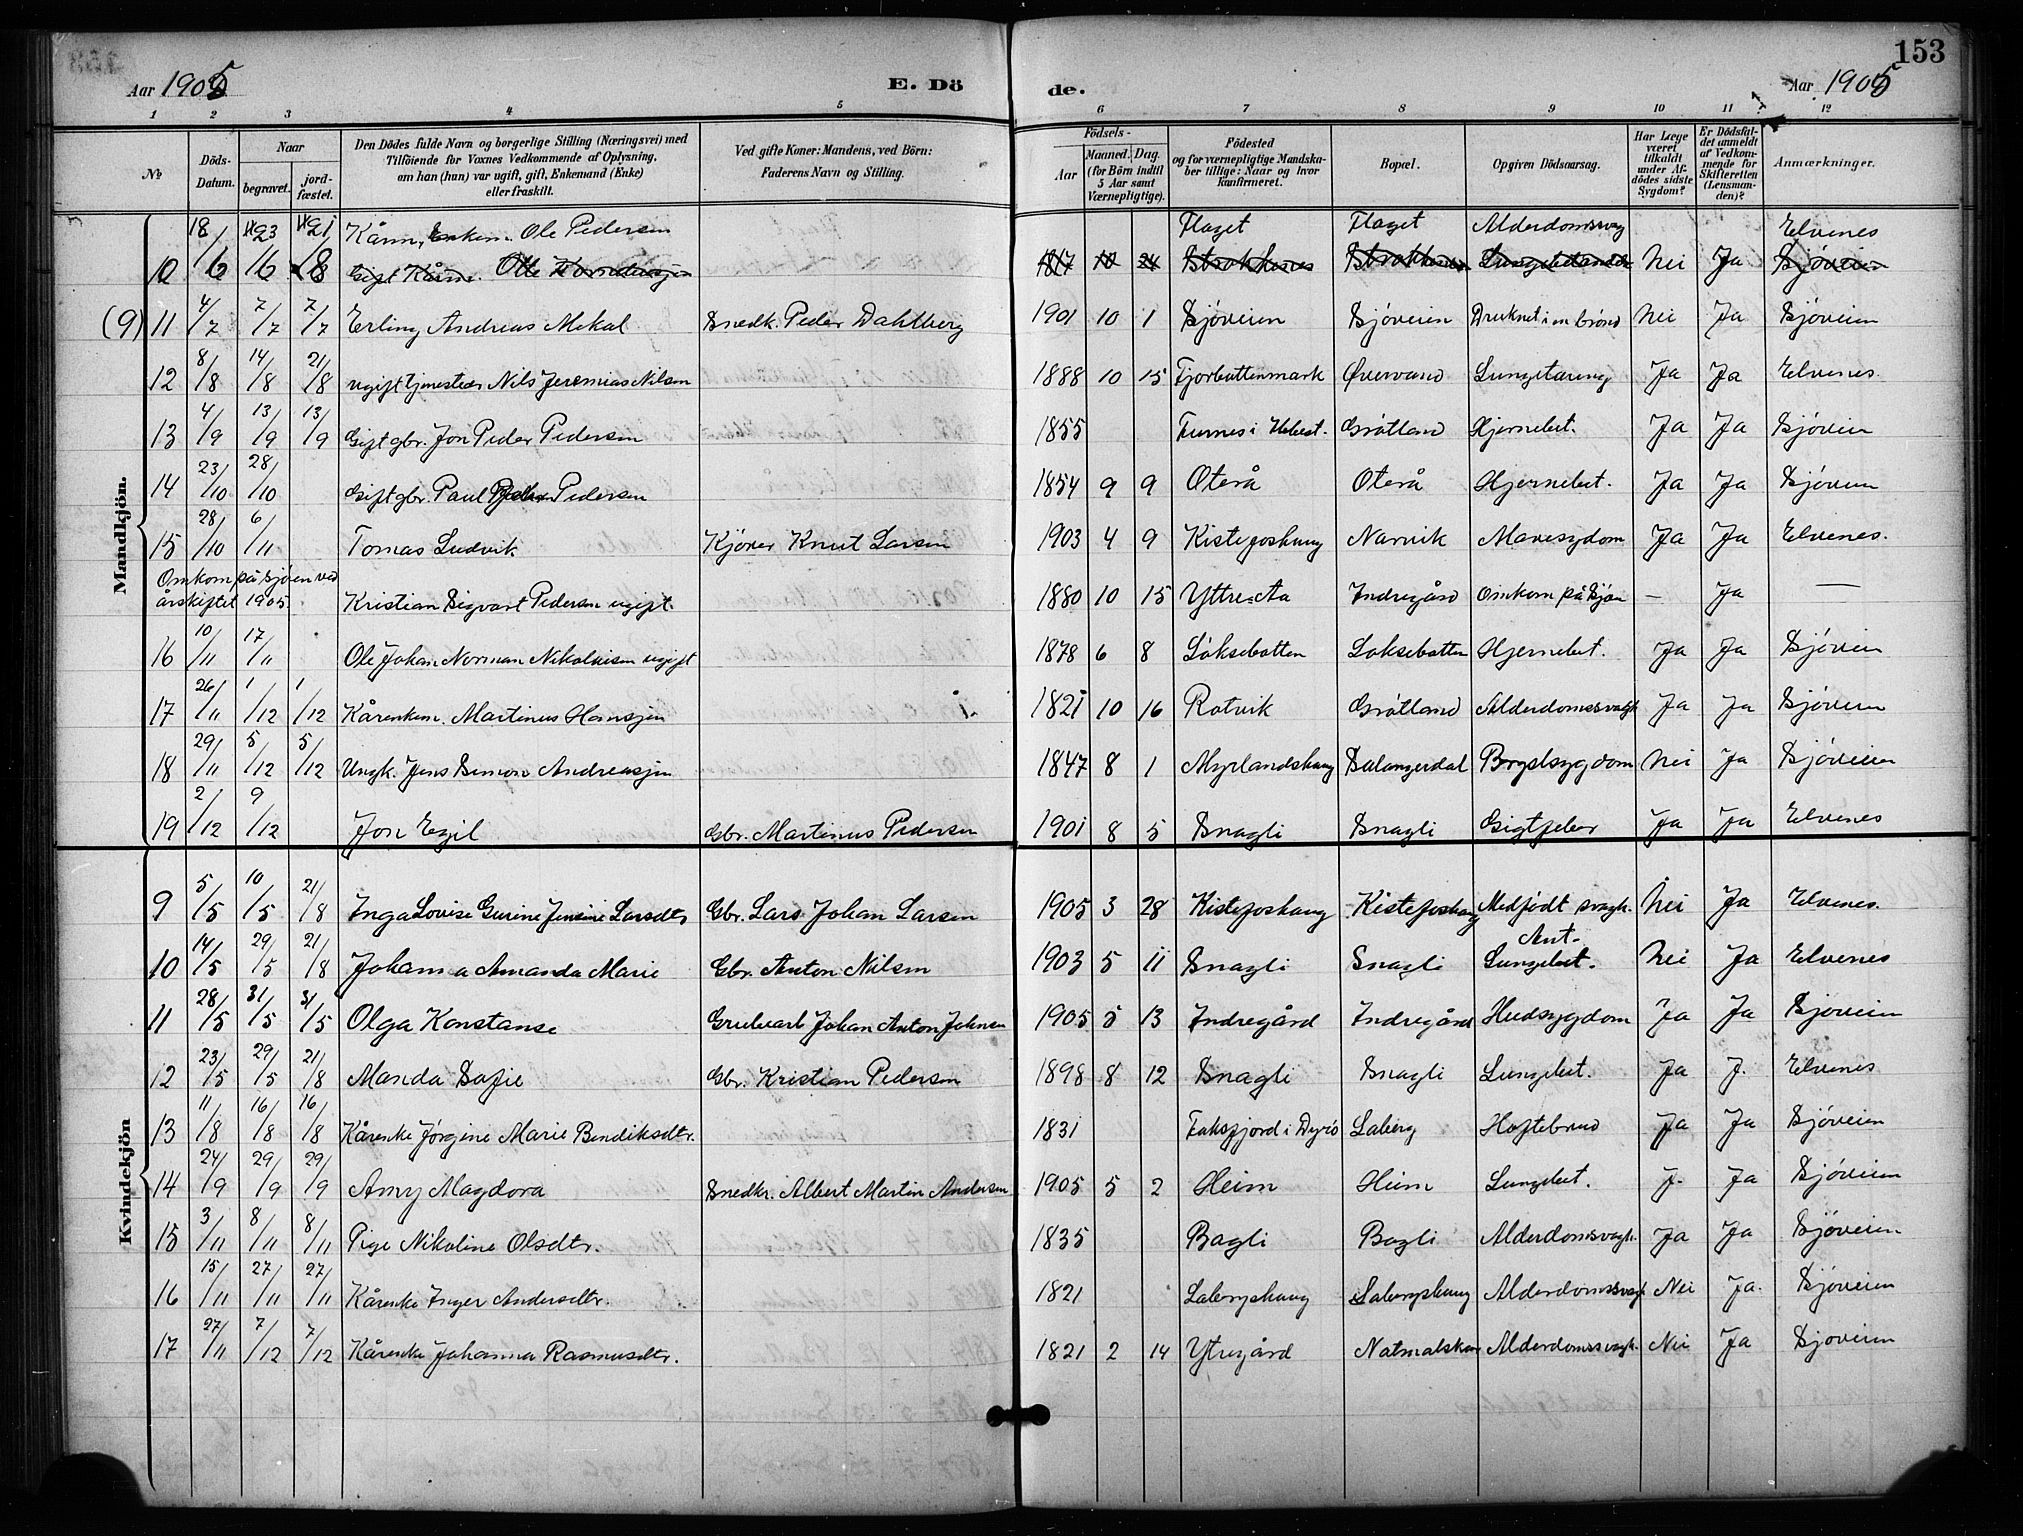 153
Aar 1905 E. Dö de. Aar 1905
1 2 3 4 5 6 7 8 9 10 11 12
№ Döds-Datum. Naar begravet. jordfæstet. Den Dödes fulde Navn og borgerlige Stilling (Næringsvei) med Tilföiende for Voxnes Vedkommende af Oplysning, om han (hun) var ugift, gift, Enkemand (Enke) eller fraskilt. Ved gifte Koner: Mandens, ved Börn: Faderens Navn og Stilling. Födsels- Aar Maaned. Dag. (for Börn indtil 5 Aar samt Værnepligtige). Födested og for værnepligtige Mandskaber tillige: Naar og hvor konfirmeret. Bopæl. Opgiven Dödsaarsag. Har Læge været tilkaldt under Afdödes sidste Sygdom? Er Dödsfaldet anmeldt af Vedkommende for Skifteretten (Lensmanden)? Anmærkninger.
Mandkjön.
Kårm, Enkem. Ole Pedersen Flaget Flaget Alderdomssvag Elvenes
10 18/6 23/6 21/8 Gift Kårm. 1817 10 24 Nei Ja Sjöveien
(9) 11 4/7 7/7 7/7 Erling Andreas Mekal Snedk. Peder Dahlberg 1901 10 1 Sjöveien Sjöveien Druknet i en brönd Nei Ja Sjöveien
12 8/8 14/8 21/8 ugift tjenestedr Nils Jeremias Nilsen 1888 10 15 Fjorbottenmark Övervand Lungetæring Ja Ja Elvenes.
13 4/9 13/9 13/9 Gift gbr. Jon Peder Pedersen 1855 Furnes i Grötland Hjernebet. Ja Ja Sjöveien
14 23/10 28/10 Gift gbr. Paul Peder Pedersen 1854 9 9 Oterå Oterå Hjernebet. Ja Ja Sjöveien
15 28/10 6/11 Tomas Ludvik Kjörer Knut Larsen 1903 4 9 Kistefoshaug Narvik Mavesygdom Ja Ja Elvenes.
Omkom på sjöen ved
årskiftet 1905. Kristian Sigvart Pedersen ugift. 1880 10 15 Yttre Aa Indregård Omkom på Sjöen — Ja —
16 10/11 17/11 Ole Johan Norman Nikolaisen ugift 1878 6 8 Löksebotten Loksebotten Hjernebet. Ja Ja Sjöveien
17 26/11 1/12 1/12 Kårenkem. Martinus Hansjen 1821 10 16 Rotvik Grötland Alderdomssvagh Ja Ja Sjöveien
18 29/11 5/12 5/12 Ungk. Jens Simon Andreasjen 1847 8 1 Myrlandshaug Salangsdal Brystsygdom Nei Ja Sjöveien
19 2/12 9/12 Jon Egil Gbr. Martinus Pedersen 1901 8 5 Snagli Snagli Gigtfeber Ja Ja Elvenes
Kvindekjön
9 5/5 10/5 21/8 Inga Lovise Gurine Jensine Larsdtr Gbr. Lars Johan Larsen 1905 3 28 Kistefoshaug Kistefoshaug Medfödt svagh. Nei Ja Elvenes.
10 14/5 29/5 21/8 Johanna Amanda Marie Gbr. Anton Nilsen 1903 5 11 Snagli Snagli Ant. Lungebet. Nei Ja Elvenes
11 28/5 31/5 31/5 Olga Konstanse Grubearb Johan Anton Johnsen 1905 5 13 Indregård Indregård Hudsygdom Ja Ja Sjöveien
12 23/5 29/5 21/8 Manda Sofie Gbr. Kristian Pedersen 1898 8 12 Snagli Snagli Lungebet. Ja J. Elvenes
13 11/8 16/8 16/8 Kårenke Jörgine Marie Bendiksdtr. 1831 Faksfjord i Dyrö Laberg Hoftebrud Ja Ja Sjöveien
14 24/9 29/9 29/9 Amy Magdora Snedkr. Albert Martin Andersen 1905 5 2 Heim Heim Lungebet. J. Ja Sjöveien
15 3/11 8/11 8/11 Pige Nikoline Olsdtr. 1835 Bagli Bagli Alderdomssvagh. Ja Ja Sjöveien
16 15/11 27/11 27/11 Kårenke Inger Andersdtr. 1821 Labergshaug Labergshaug Alderdomssvagh Nei Ja. Sjöveien
17 27/11 7/12 7/12 Kårenke Johanna Rasmusdtr. 1821 2 14 Ytregård Alderdomssvagh. Nei Ja Sjöveien